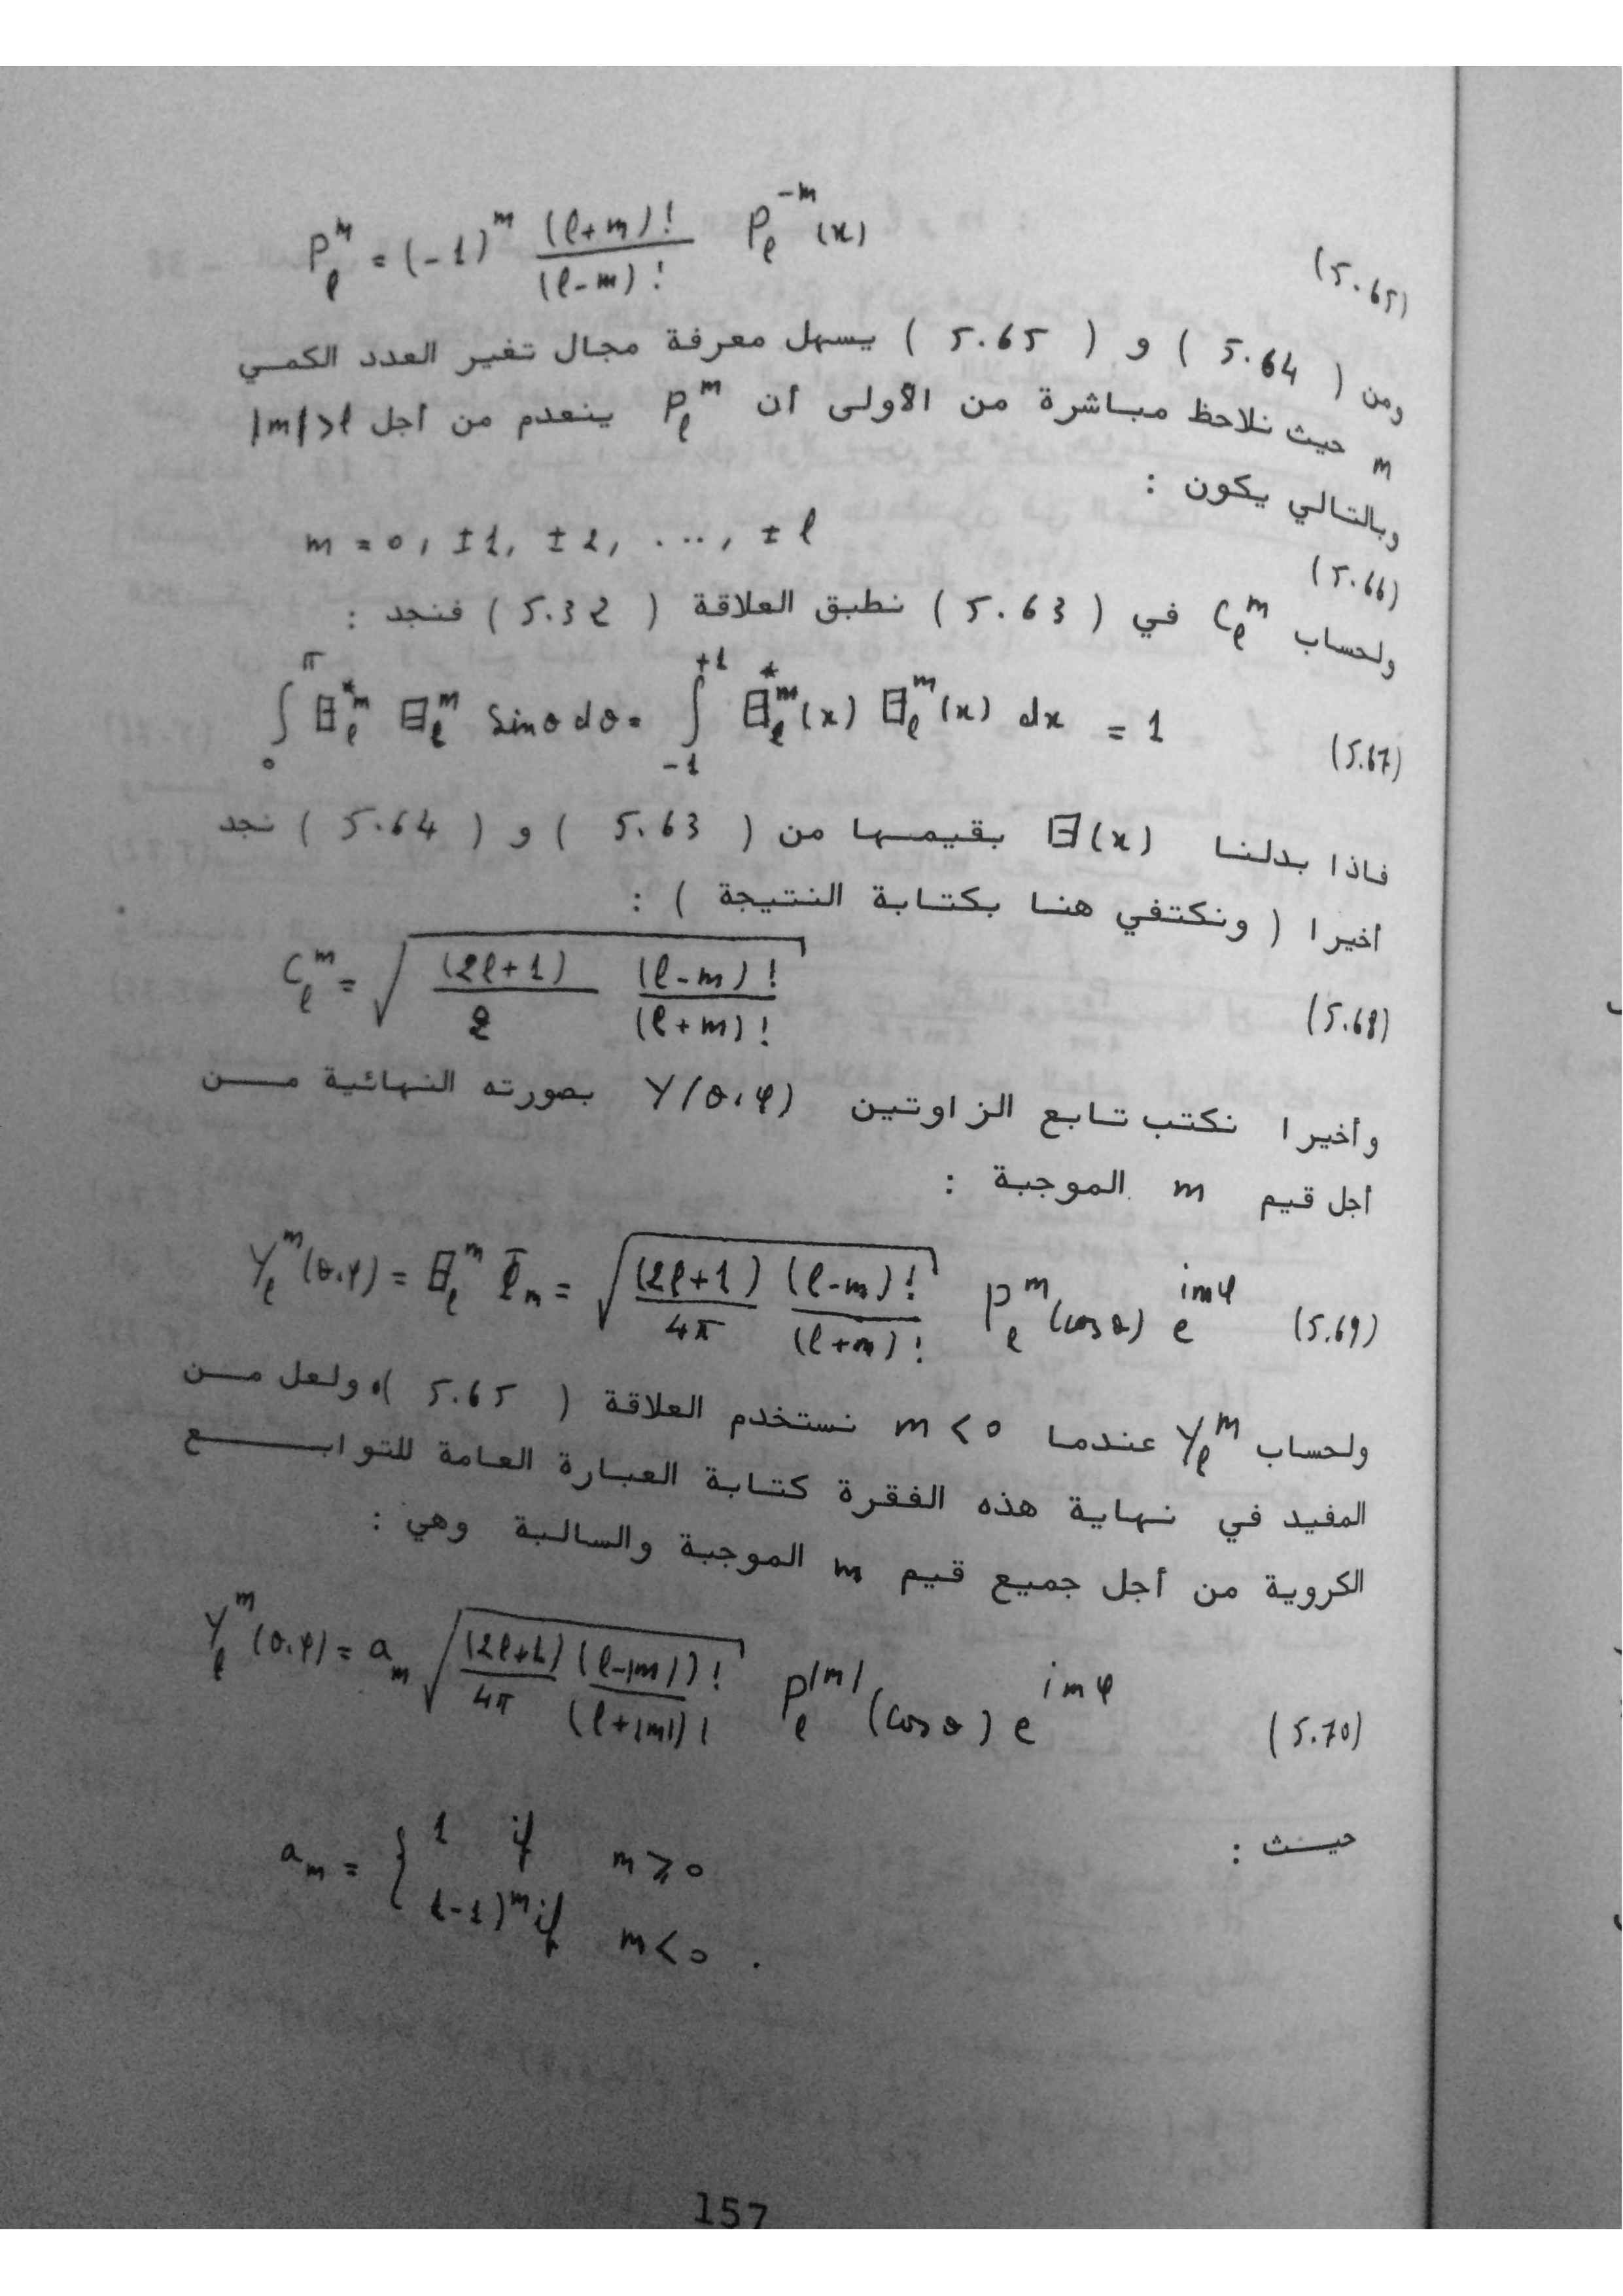 P_ℓ^m = (-1)^m (ℓ+m)! / (ℓ-m)! P_ℓ^{-m}(x) (5.65)
ومن ( 5.64 ) و ( 5.65 ) يسهل معرفة مجال تغير العدد الكمي
m حيث نلاحظ مباشرة من الأولى أن P_ℓ^m ينعدم من أجل |m|>ℓ
وبالتالي يكون :
m = 0, ±1, ±2, ..., ±ℓ (5.66)
ولحساب C_ℓ^m في ( 5.63 ) نطبق العلاقة ( 5.32 ) فنجد :
∫_0^π Θ_ℓ^{*m} Θ_ℓ^m sinθ dθ = ∫_{-1}^{+1} Θ_ℓ^{*m}(x) Θ_ℓ^m(x) dx = 1 (5.67)
فاذا بدلنا Θ(x) بقيمها من ( 5.63 ) و ( 5.64 ) نجد
أخيرا ( ونكتفي هنا بكتابة النتيجة ) :
C_ℓ^m = √( (2ℓ+1)/2 (ℓ-m)!/(ℓ+m)! ) (5.68)
وأخيرا نكتب تابع الزاوتين Y(θ,φ) بصورته النهائية من
أجل قيم m الموجبة :
Y_ℓ^m(θ,φ) = Θ_ℓ^m Φ_m = √( (2ℓ+1)/4π (ℓ-m)!/(ℓ+m)! ) P_ℓ^m(cosθ) e^{imφ} (5.69)
ولحساب Y_ℓ^m عندما m < 0 نستخدم العلاقة ( 5.65 )، ولعل من
المفيد في نهاية هذه الفقرة كتابة العبارة العامة للتوابع
الكروية من أجل جميع قيم m الموجبة والسالبة وهي :
Y_ℓ^m(θ,φ) = a_m √( (2ℓ+1)/4π (ℓ-|m|)!/(ℓ+|m|)! ) P_ℓ^{|m|}(cosθ) e^{imφ} (5.70)
حيث :
a_m = { 1 if m ≥ 0
(-1)^m if m < 0 .
157